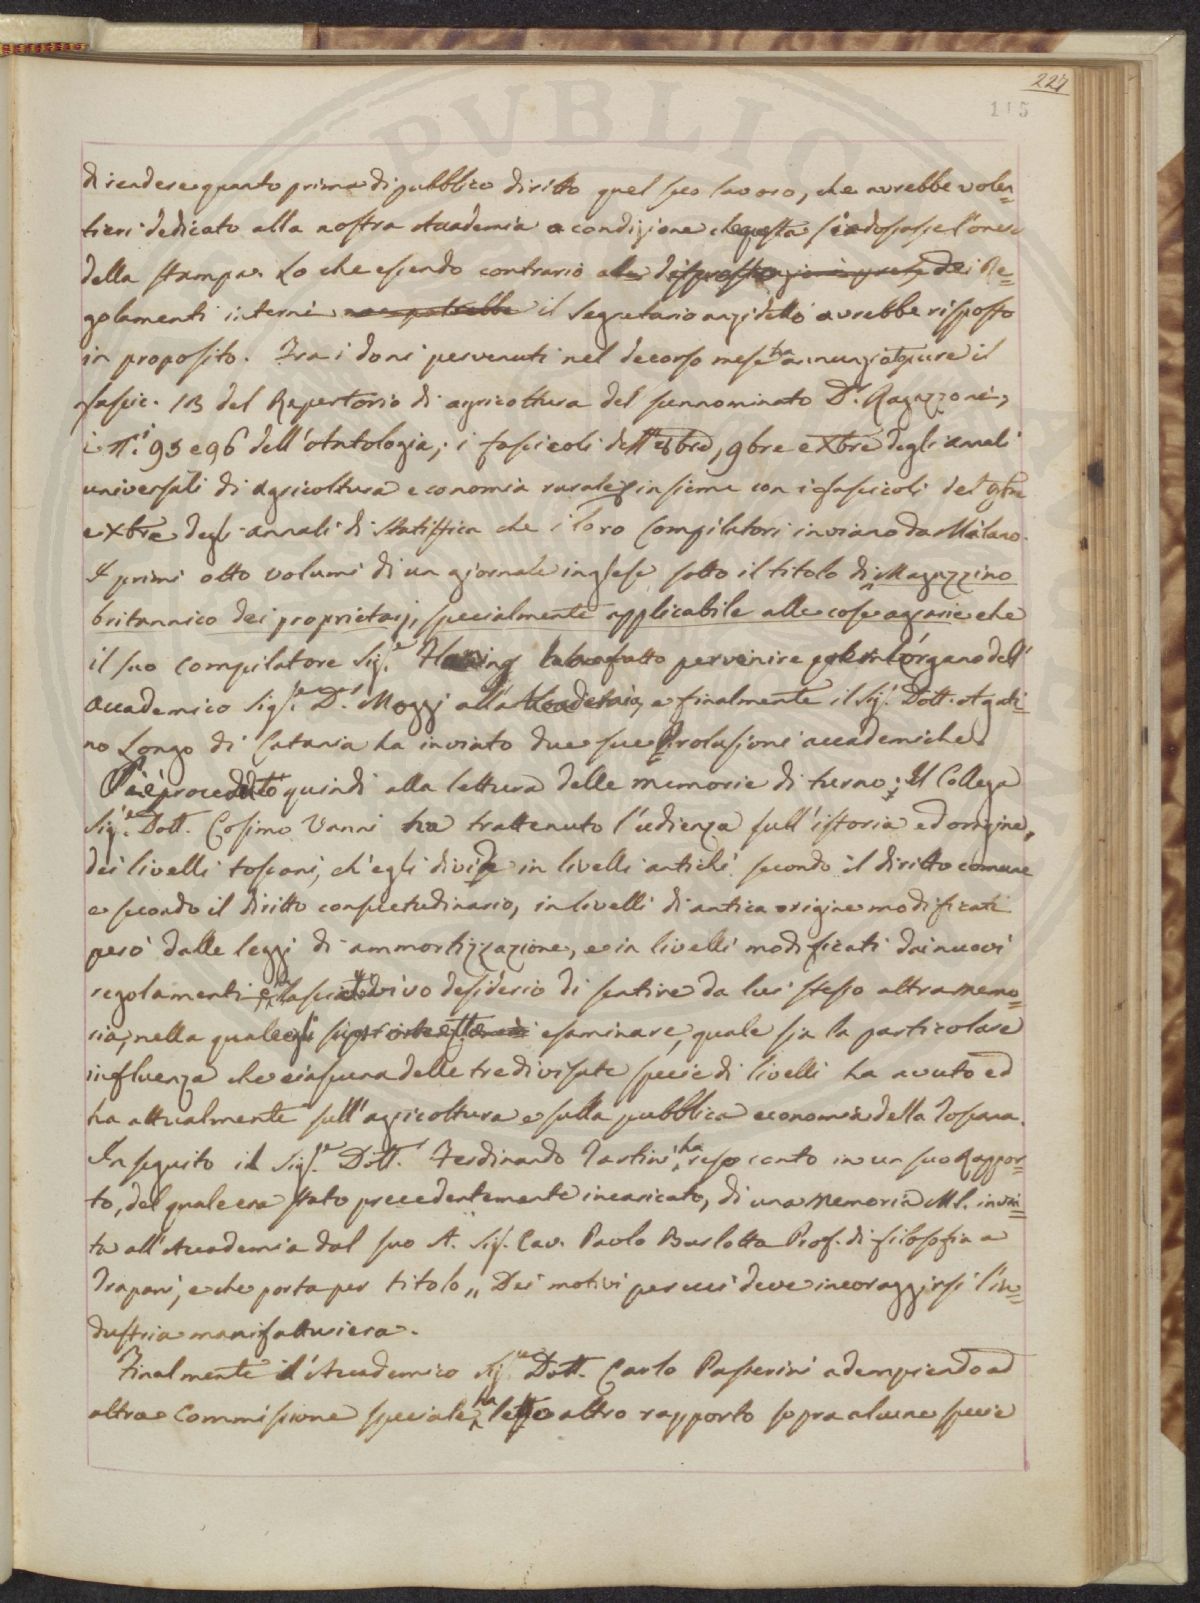 227
115
PVBLIC
di rendere quanto prima di pubblico diritto quel suo lavoro, che avrebbe volen=
tieri dedicato alla nostra Accademia a condizione che questa si addossasse l'onere
della stampa. Lo che essendo contrario ai Re=
golamenti interni non potrebbe il Segretario anzidetto avrebbe risposto
in proposito. Fra i doni pervenuti nel decorso mese ha annunziato pure il
fascic. 13 del Repertorio di agricoltura del sunnominato Dr. Ragazzoni,
i Ni. 95 e 96 dell'Antologia; i fascicoli dell'8bre, 9bre e Xbre degli annali
universali di agricoltura economia rurale insieme con i fascicoli del 9bre
e Xbre degli annali di Statistica che i loro Compilatori inviano da Milano.
I primi otto volumi di un giornale inglese sotto il titolo di Magazzino
britannico dei proprietarj, specialmente applicabile alle cose agrarie che
il suo compilatore Sigr. ha fatto pervenire per l'organo dell'
Accademico Sigr. Dr. Moggj all'Accademia, e finalmente il Sigr. Dott. Agati=
no Longo di Catania ha inviato due sue Prolusioni accademiche.
Si è proceduto quindi alla lettura delle memorie di turno; Il Collega
Sigr. Dott. Cosimo Vanni ha trattenuto l'udienza sull'istoria ed origine,
dei livelli toscani, ch'egli divide in livelli antichi secondo il diritto comune
e secondo il diritto consuetudinario, in livelli di antica origine modificati
però dalle leggi di ammortizzazione, e in livelli modificati dai nuovi
regolamenti, e lasciato vivo desiderio di sentire da lui stesso altra memo=
ria, nella quale egli esaminare, quale sia la particolare
influenza che ciascuna delle tre divisate specie di livelli ha avuto ed
ha attualmente sull'agricoltura e sulla pubblica economia della Toscana.
In seguito il Sigr. Dott. Ferdinando Tartini, ha reso conto in un suo Rappor=
to, del quale era stato precedentemente incaricato, di una Memoria Ms. invia=
ta all'Accademia dal suo A. Sigr. Cav. Paolo Burlotta Prof. di filosofia a
Trapani, e che porta per titolo „ Dei motivi per cui deve incoraggirsi l'in=
dustria manifatturiera.
Finalmente l'Accademico Sigr. Dott. Carlo Passerini adempiendo ad
altra Commissione speciale, ha letto altro rapporto sopra alcune specie